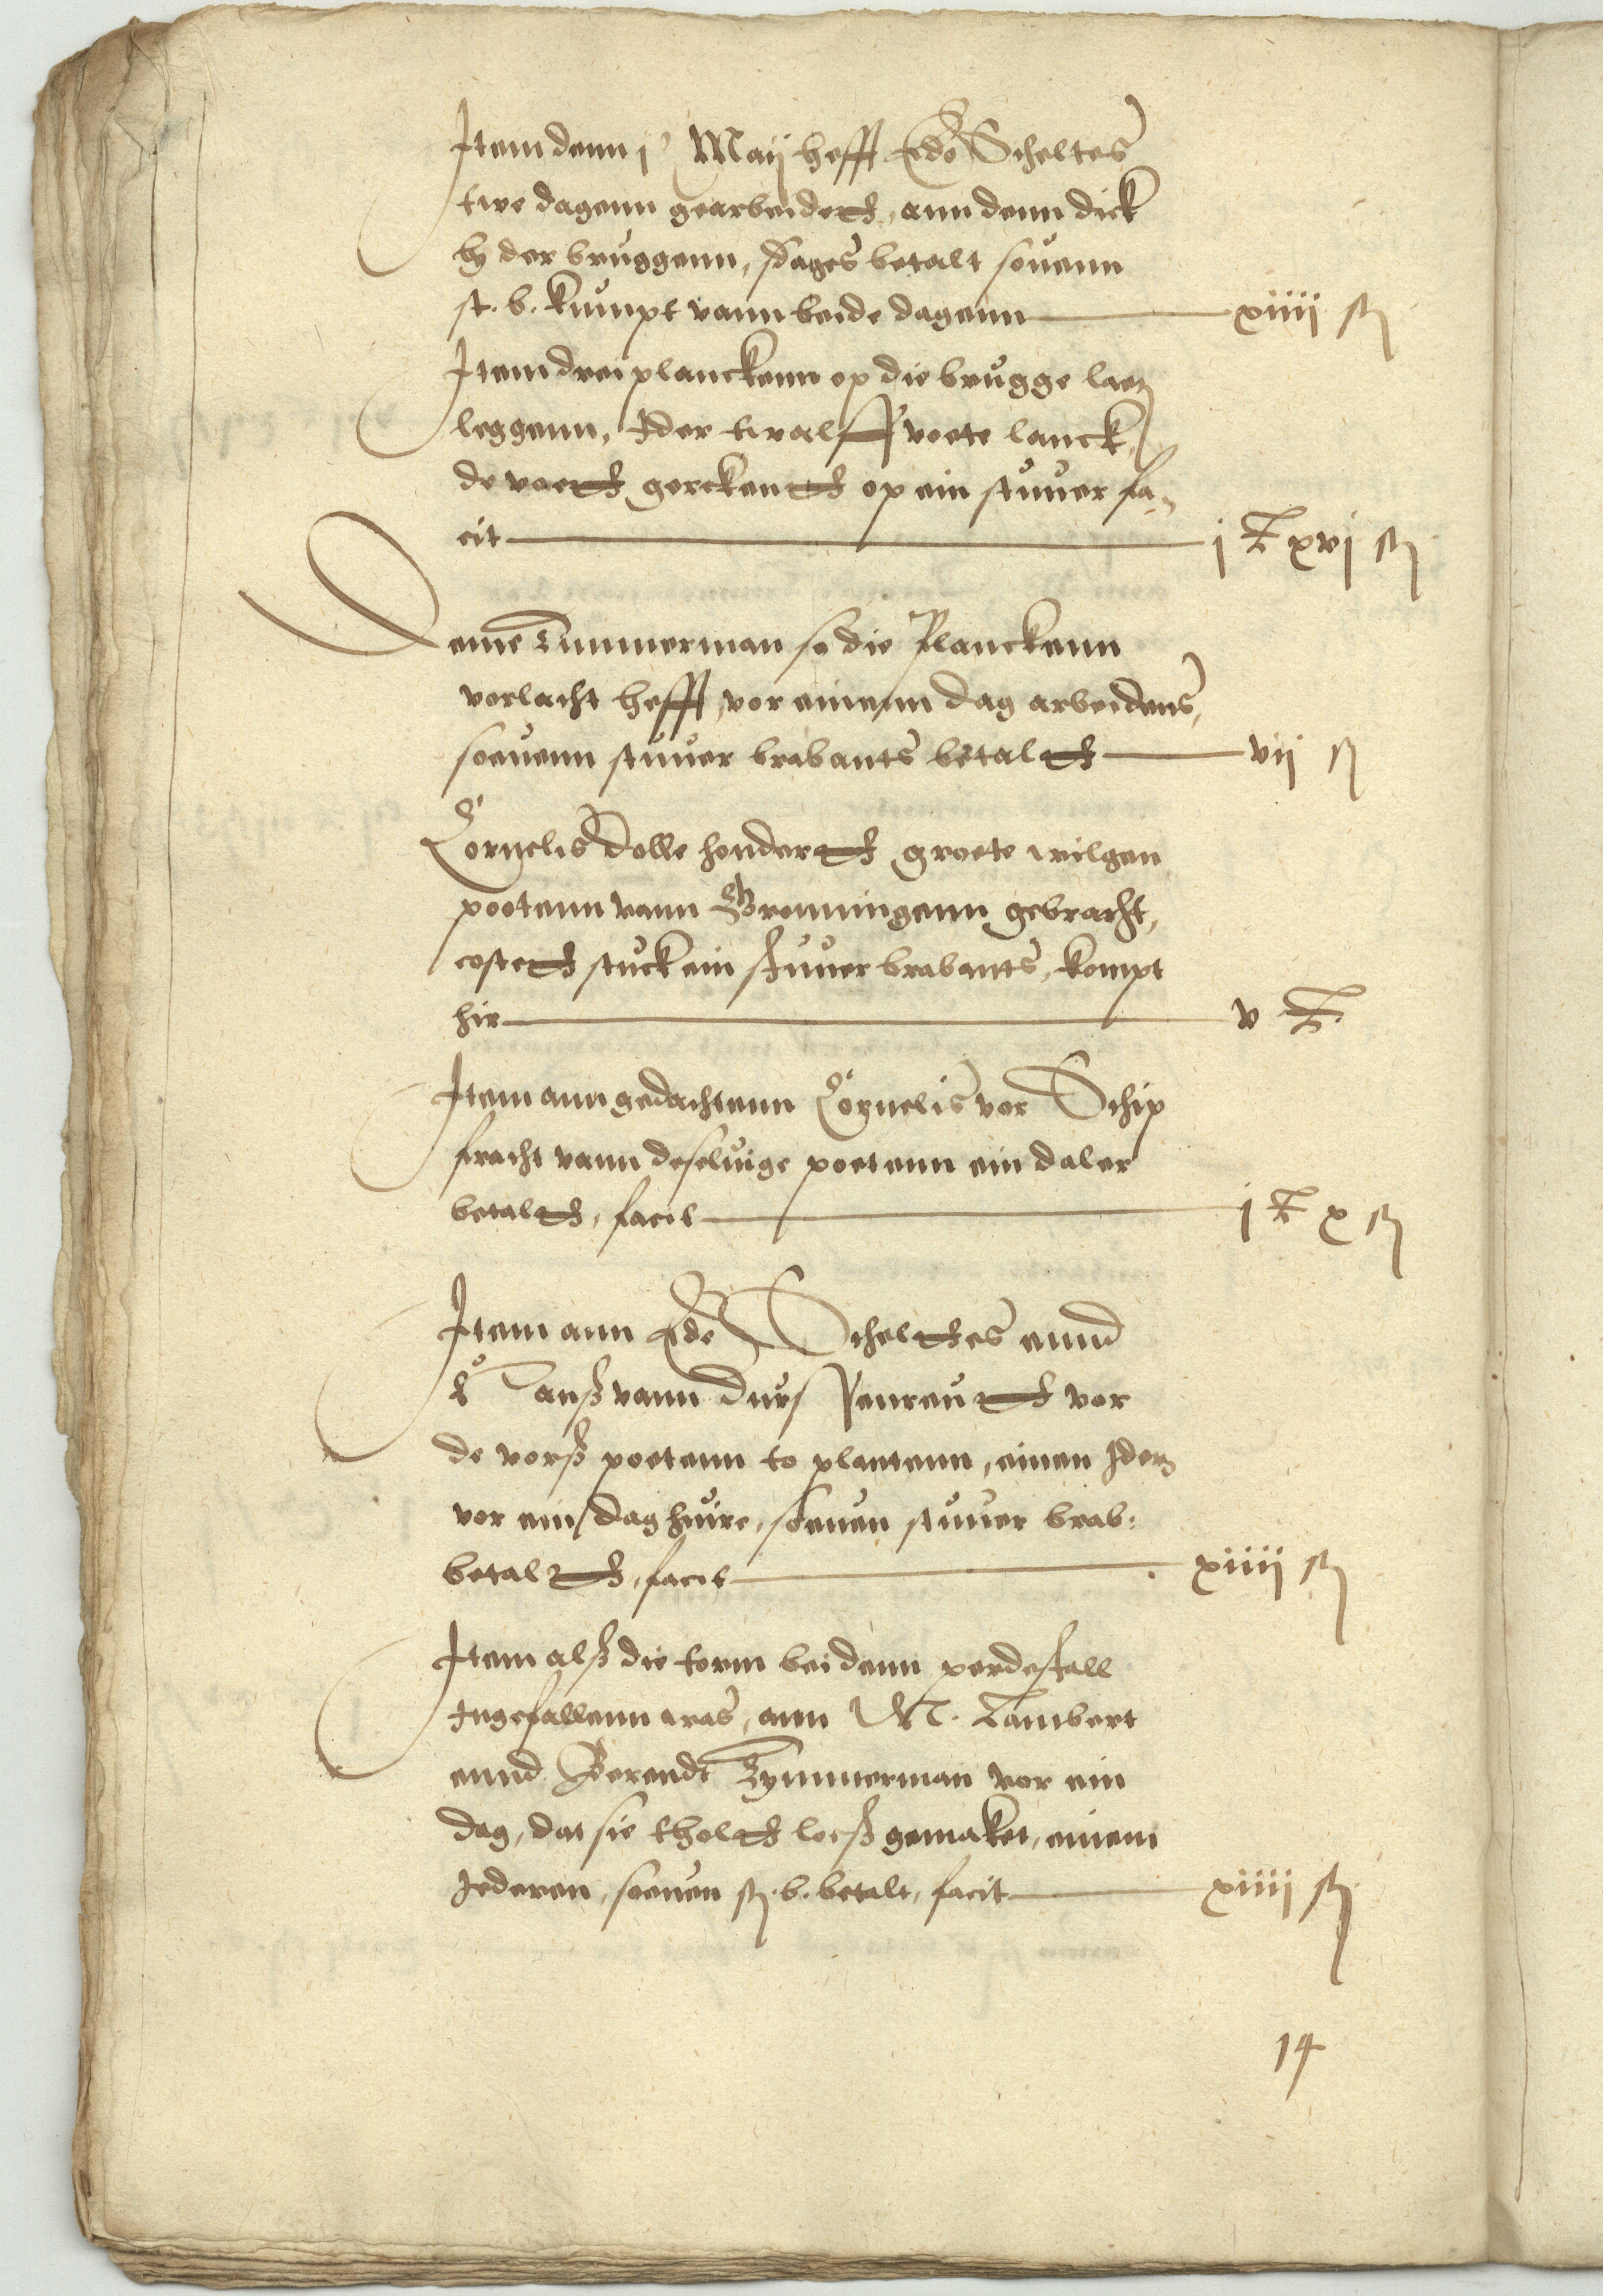 Item denn j Maij hefft Edo Scheltes
twe dagenn gearbeidedt, ann denn dick
by der bruggenn, sdages betalt souenn
st. b. kumpt vann beide dagenn xiiij st
Item drei planckenn op die brugge laet
leggenn, Ider twalff voete lanck,
de voedt gereckendt op ein stuuer fa-
cit j xvj st
eme Timmerman so die Planckenn
verlacht hefft, vor einenn dag arbeidens,
soeuenn stuuer brabants betaldt vij st
Cornelis dolle honderdt groete wilgen
pootenn vann Gronningenn gebracht,
costedt stuck ein stuuer brabants, kompt
hir v
Item ann gedachtenn Cornelis vor Schip
fracht vann deselvige poetenn ein daler
betaldt, facit j x st
Item ann Ede Scheltes ennd
vann vor
de vorß poetenn to plantenn, einen Ider
vor ein dag huire, soeuen stuuer brab:
betaldt, facit xiiij st
Item alß die torm bei denn perdestall
Ingefallenn was, ann M. Lambert
ennd Berendt Tymmerman vor ein
dag, dat sie tholdt loeß gemaket, einem
Jederen, soeuen st. b. betalt, facit xiiij st
14